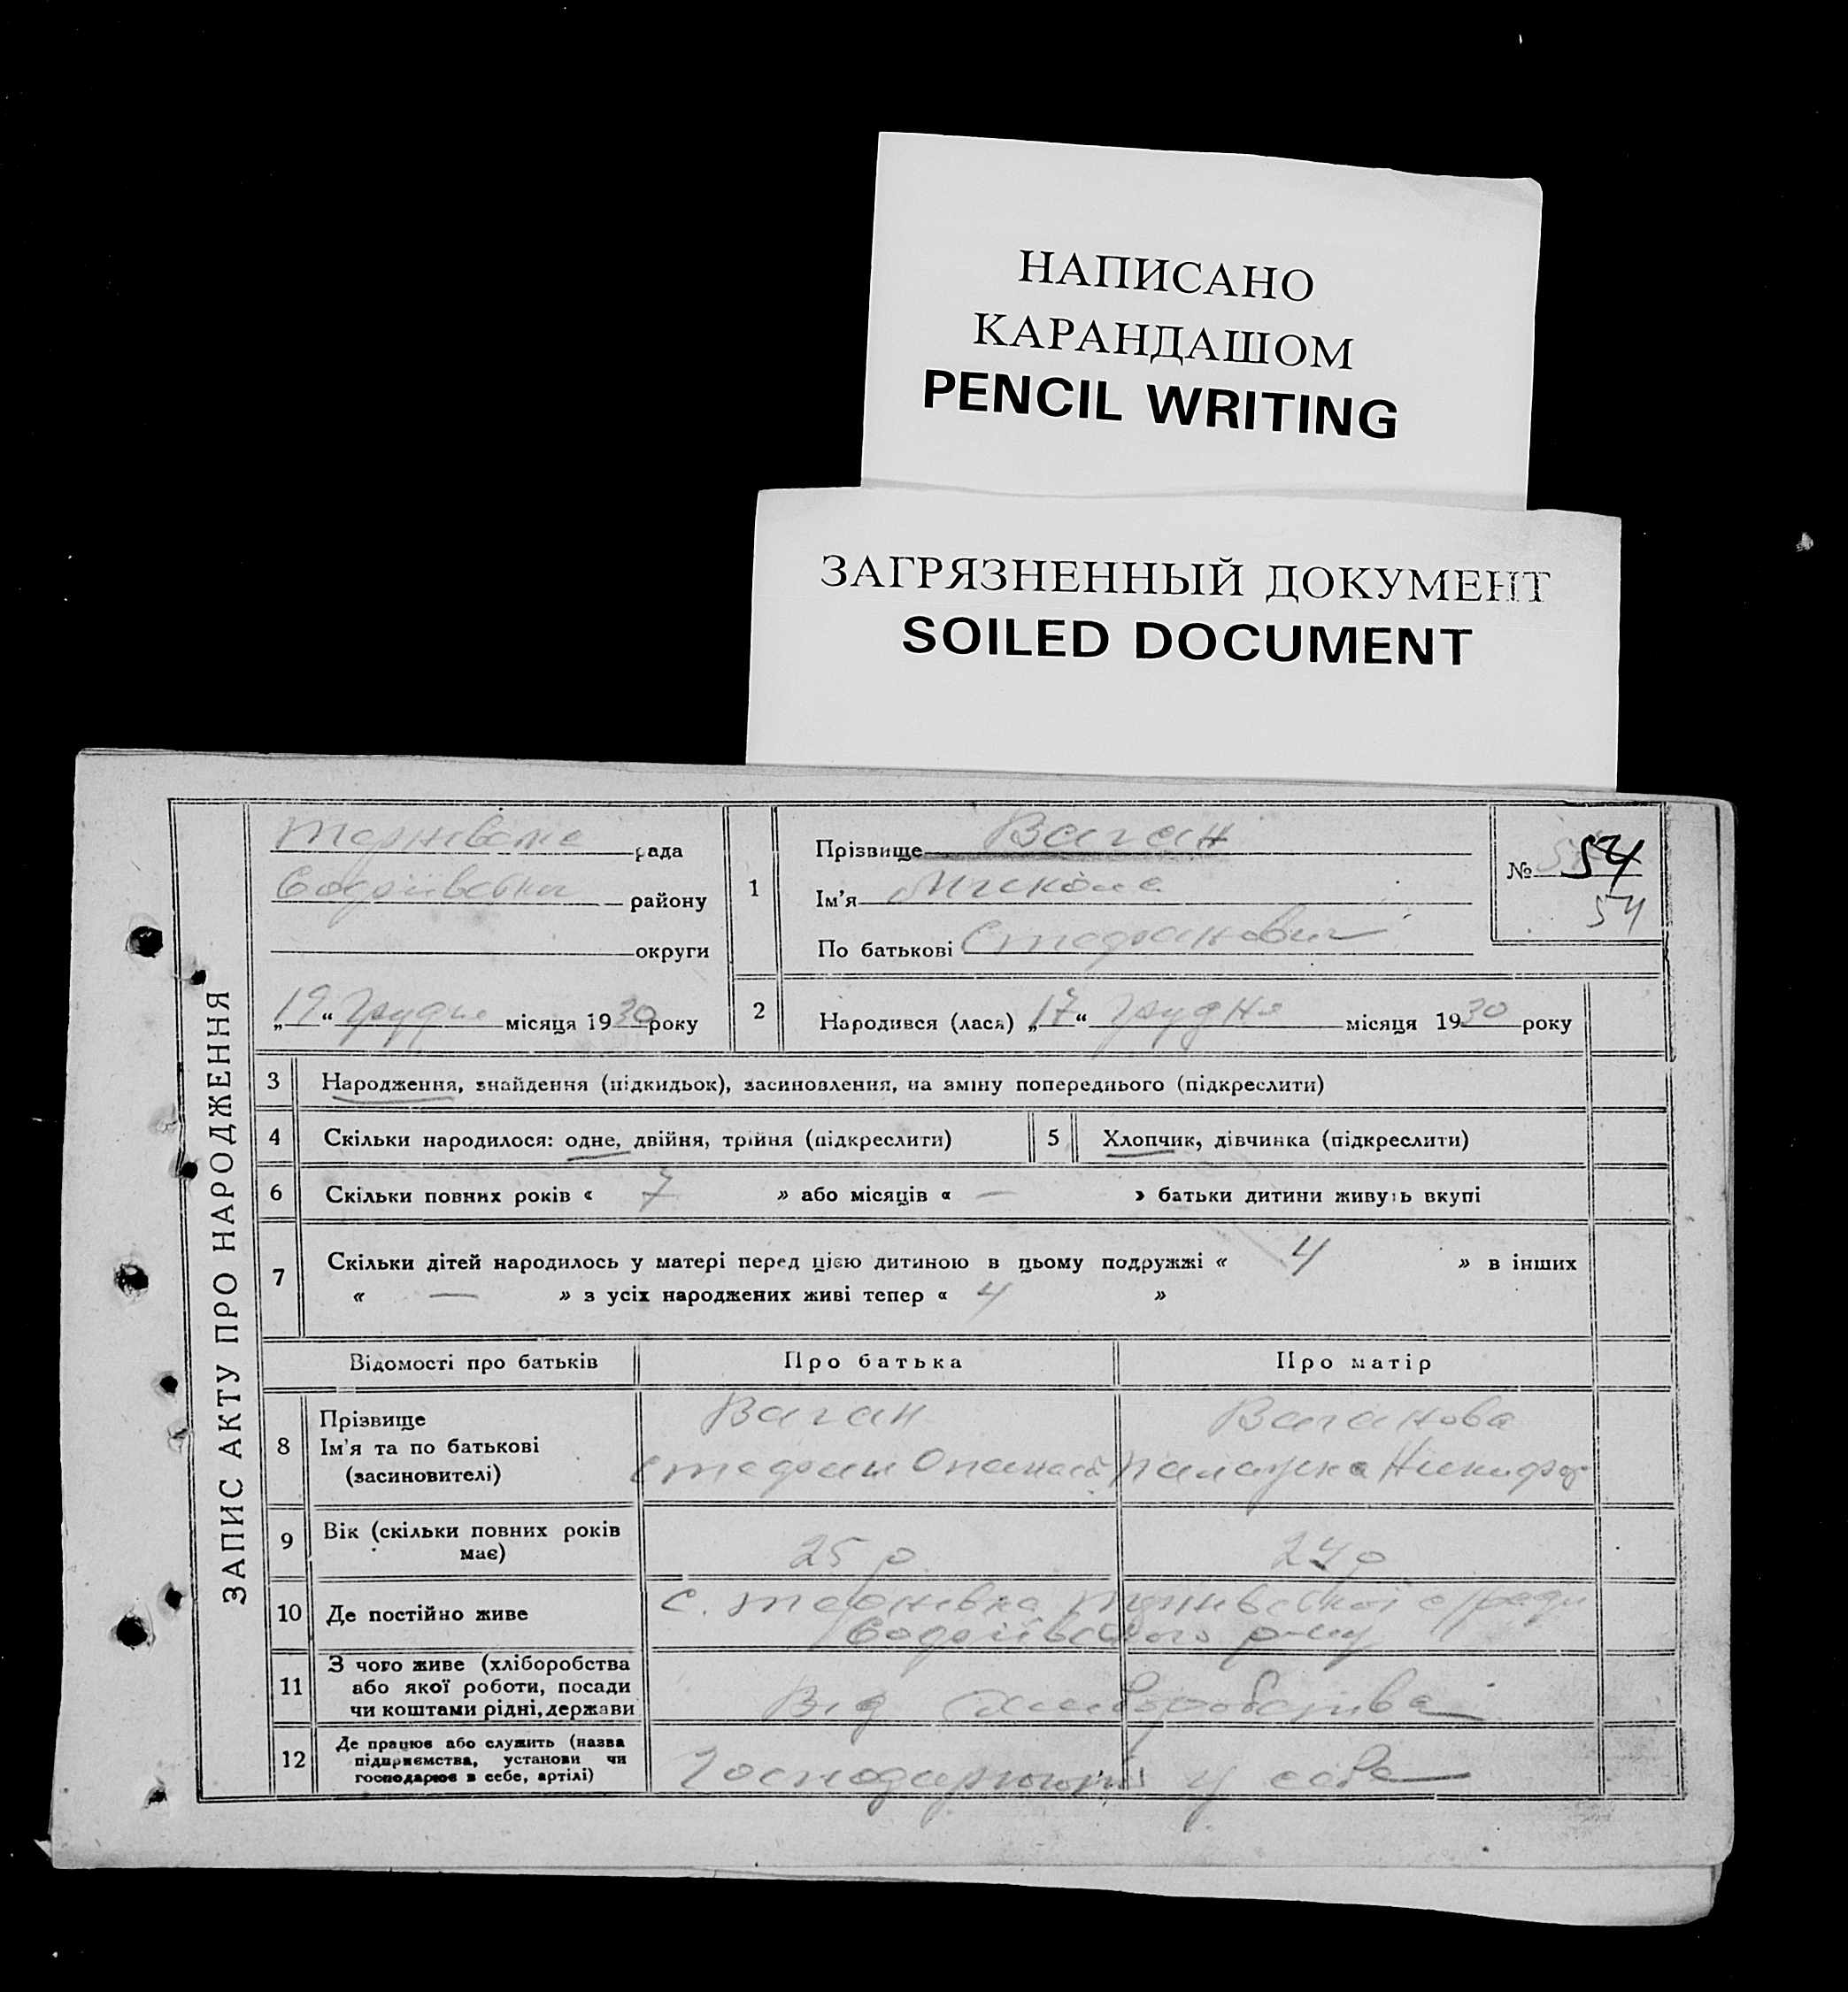 НАПИСАНО
КАРАНДАШОМ
PENCIL WRITING
ЗАГРЯЗНЕННЫЙ ДОКУМЕНТ
SOILED DOCUMENT
ЗАПИС АКТУ ПРО НАРОДЖЕННЯ
рада
району
округи
„19“ грудня місяця 1930 року
1
Прізвище Ваган
Ім'я Микола
По батькові Стефанович
№ 54
54
2
Народився (лася) „17“ грудня місяця 1930 року
3 Народження, знайдення (підкидьок), засиновлення, на зміну попереднього (підкреслити)
4 Скільки народилося: одне, двійня, трійня (підкреслити)
5 Хлопчик, дівчинка (підкреслити)
6 Скільки повних років « 7 » або місяців « — » батьки дитини живуть вкупі
7 Скільки дітей народилось у матері перед цією дитиною в цьому подружжі « 4 » в інших
« — » з усіх народжених живі тепер « 4 »
Відомості про батьків Про батька Про матір
8 Прізвище
Ім'я та по батькові
(засиновителі)
Ваган
Стефан
Ваганова
9 Вік (скільки повних років
має)
25 р
24 р
10 Де постійно живе
с. Тернівка
11 З чого живе (хліборобства
або якої роботи, посади
чи коштами рідні, держави
Від хліборобства
12 Де працює або служить (назва
підприємства, установи чи
господарює в себе, артілі)
у себе